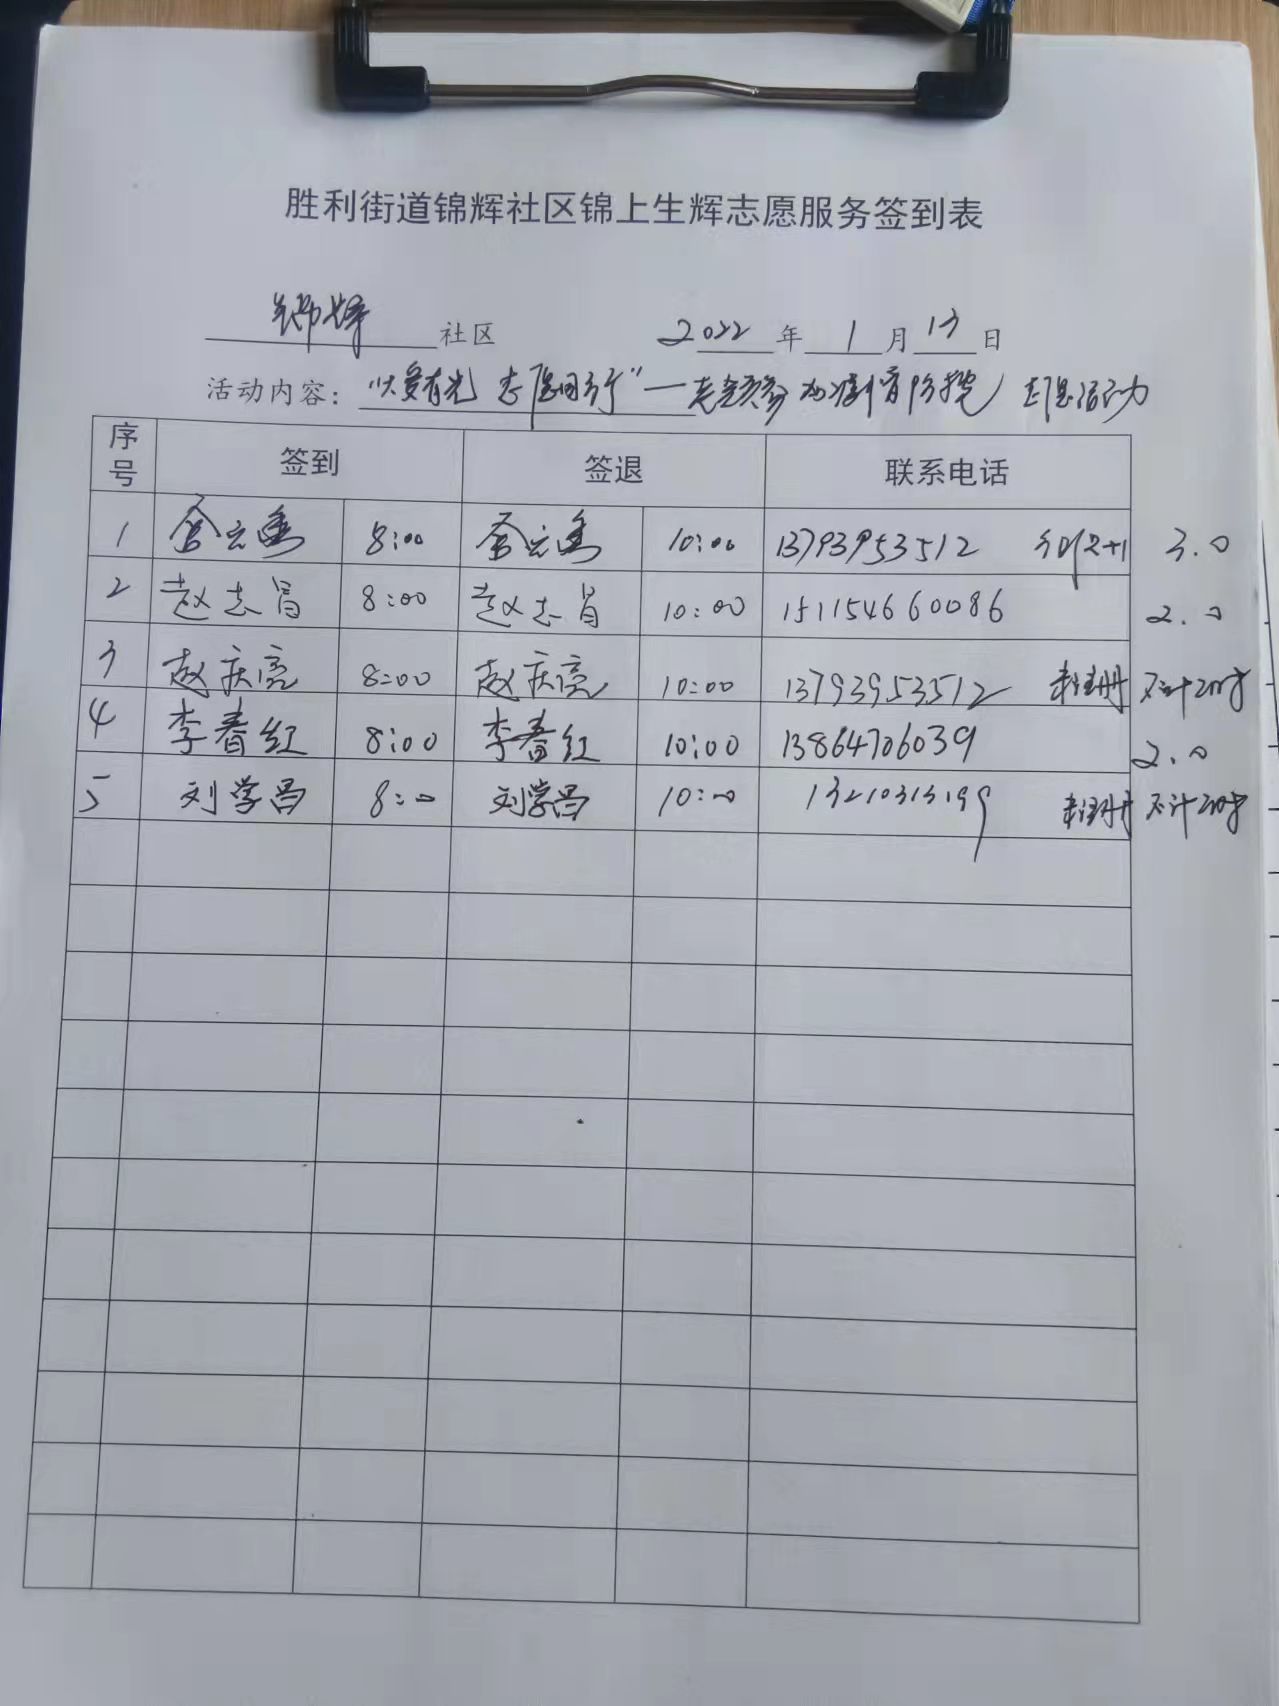 胜利街道锦辉社区锦上生辉志愿服务签到表
锦辉 社区 2022 年 1 月 13 日
活动内容: "以爱有光 志愿同行"— 志愿活动
序号 签到 签退 联系电话
1 8:00 10:00 13793953512 3.0
2 赵志昌 8:00 赵志昌 10:00 151154660086 2.0
3 赵庆亮 8:00 赵庆亮 10:00 13793953512 未注册 不计时
4 李春红 8:00 李春红 10:00 13864706039 2.0
5 刘学昌 8:00 刘学昌 10:00 未注册 不计时